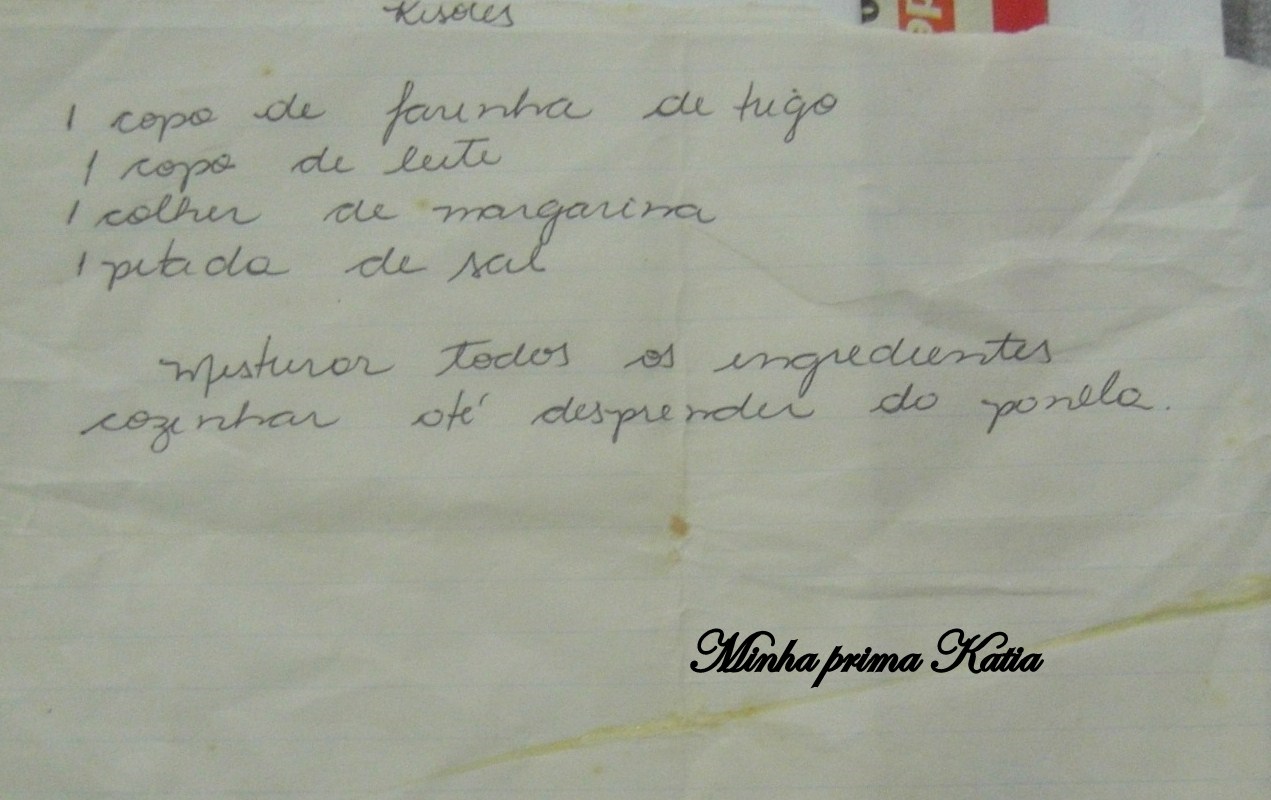 Risoles
de
1 copo de farinha de trigo
1 copo de leite
1 colher de margarina
1 pitada de sal
Misturar todos os ingredientes
cozinhar até desprender da panela.
Minha prima Katia